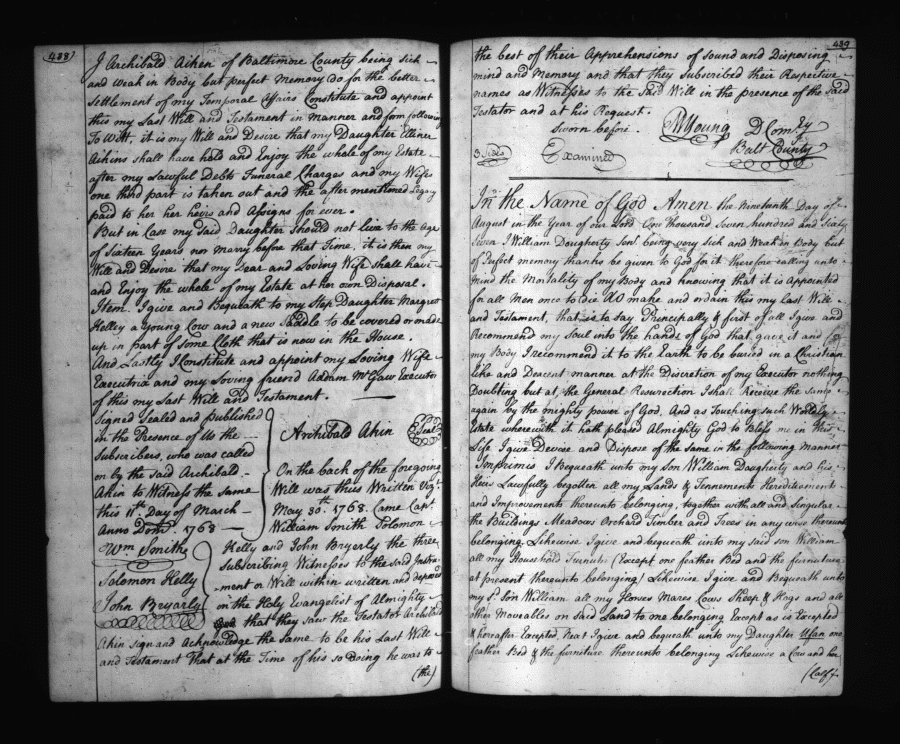 438
I Archibald Aiken of Baltimore County being Sick
and weak in Body but perfect Memory do for the better
Settlement of my Temporal Affairs Constitute and appoint
this my Last Will and Testament in Manner and form following
To Witt, it is my Will and Desire that my Daughter Ellinor
Aikins shall have hold and Enjoy the whole of my Estate
after my Lawful Debts Funeral Charges and my Wifes
one third part is taken out and the after mentioned Legacy
paid to her her heirs and Assigns for ever.
But in Case my said Daughter should not live to the age
of Sixteen Years nor Marry before that Time, it is then my
Will and Desire that my Dear and Loving Wife shall have
and Enjoy the whole of my Estate at her own Disposal.
Item. I give and Bequeath to my Step Daughter Margrett
Kelley a Young Cow and a new Saddle to be covered or made
up in part of some Cloth that is now in the House.
And Lastly I Constitute and appoint my Loving Wife
Executrix and my Loving friend Addam McGaw Executor
of this my Last Will and Testament.
Signed Sealed and published
in the Presence of Us the
Subscribers, who was called
on by the said Archibald
Akin to Witness the same
this 11th Day of March
Anno Dom. 1768
Archibald Akin Seal
Wm Smith
Solomon Kelly
John Bryarly
On the back of the foregoing
Will was thus Written Vizt.
May 30th. 1768. Came Capt.
William Smith Solomon
Kelly and John Bryerly the three
Subscribing Witnesses to the said Instru-
-ment or Will within written and deposed
on the Holy Evangelist of Almighty
God that they saw the Testator Archibald
Akin sign and Acknowledge the same to be his Last Will
and Testament That at the Time of his so Doing he was to
(the)
439
the best of their Apprehensions of sound and Disposing
mind and Memory and that they Subscribed their Respective
names as Witnesses to the Said Will in the presence of the Said
Testator and at his Request.
Sworn before. Young D Comry
Balt County
3 Sides Examined
In the Name of God Amen the Nineteenth Day of
August in the Year of our Lord One thousand Seven hundred and Sixty
Seven I William Dougherty Senr. being very Sick and Weak in Body but
of Perfect memory thanks be given to God for it therefore calling unto
Mind the Mortality of my Body and knowing that it is appointed
for all Men once to die DO make and ordain this my Last Will
and Testament, that is to say Principally & first of all I give and
Recommend my Soul into the hands of God that gave it and
my Body I recommend it to the Earth to be buried in a Christian
like and Decent manner at the Discretion of my Executor nothing
Doubting but at the General Resurection I shall Receive the same
again by the mighty power of God. And as Touching such Worldly
Estate wherewith it hath pleased Almighty God to Bless me in this
Life I give Devise and Dispose of the same in the following manner
Imprimis I Bequeath unto my Son William Daugherty and his
Heirs Lawfully begotten all my Lands & Tennements Hereditaments
and Improvements thereunto belonging, together with all and Singular
the Buildings Meadows Orchard Timber and Trees in any wise thereunto
belonging Likewise I give and bequeath unto my said son William
all my Household Furniture (Except one feather Bed and the furniture
at present thereunto belonging) Likewise I give and Bequeath unto
my Sd. Son William all my Horses Mares Cows Sheep & Hogs and all
other Moveables on said Land to me belonging Except as is Excepted
& hereafter Excepted, Next I give and bequeath unto my Daughter one
feather Bed & the furniture thereunto belonging Likewise a Cow and her
(Calf)